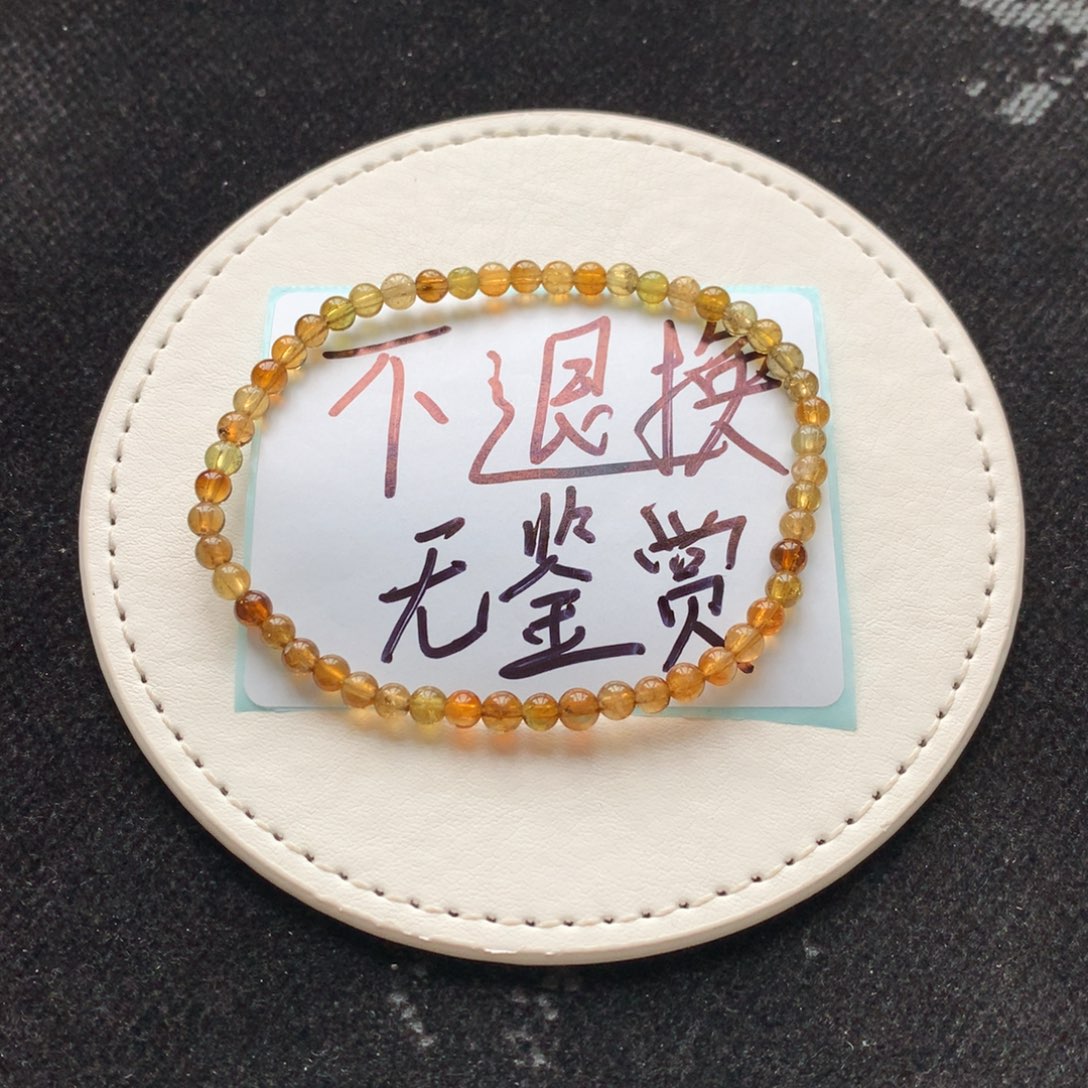 不退换
无鉴赏